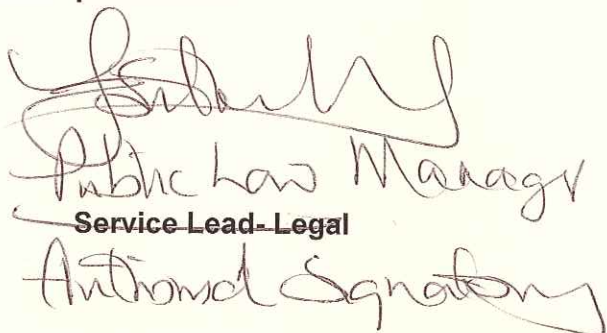 Public Law Manager
Service Lead- Legal
Authorised Signatory